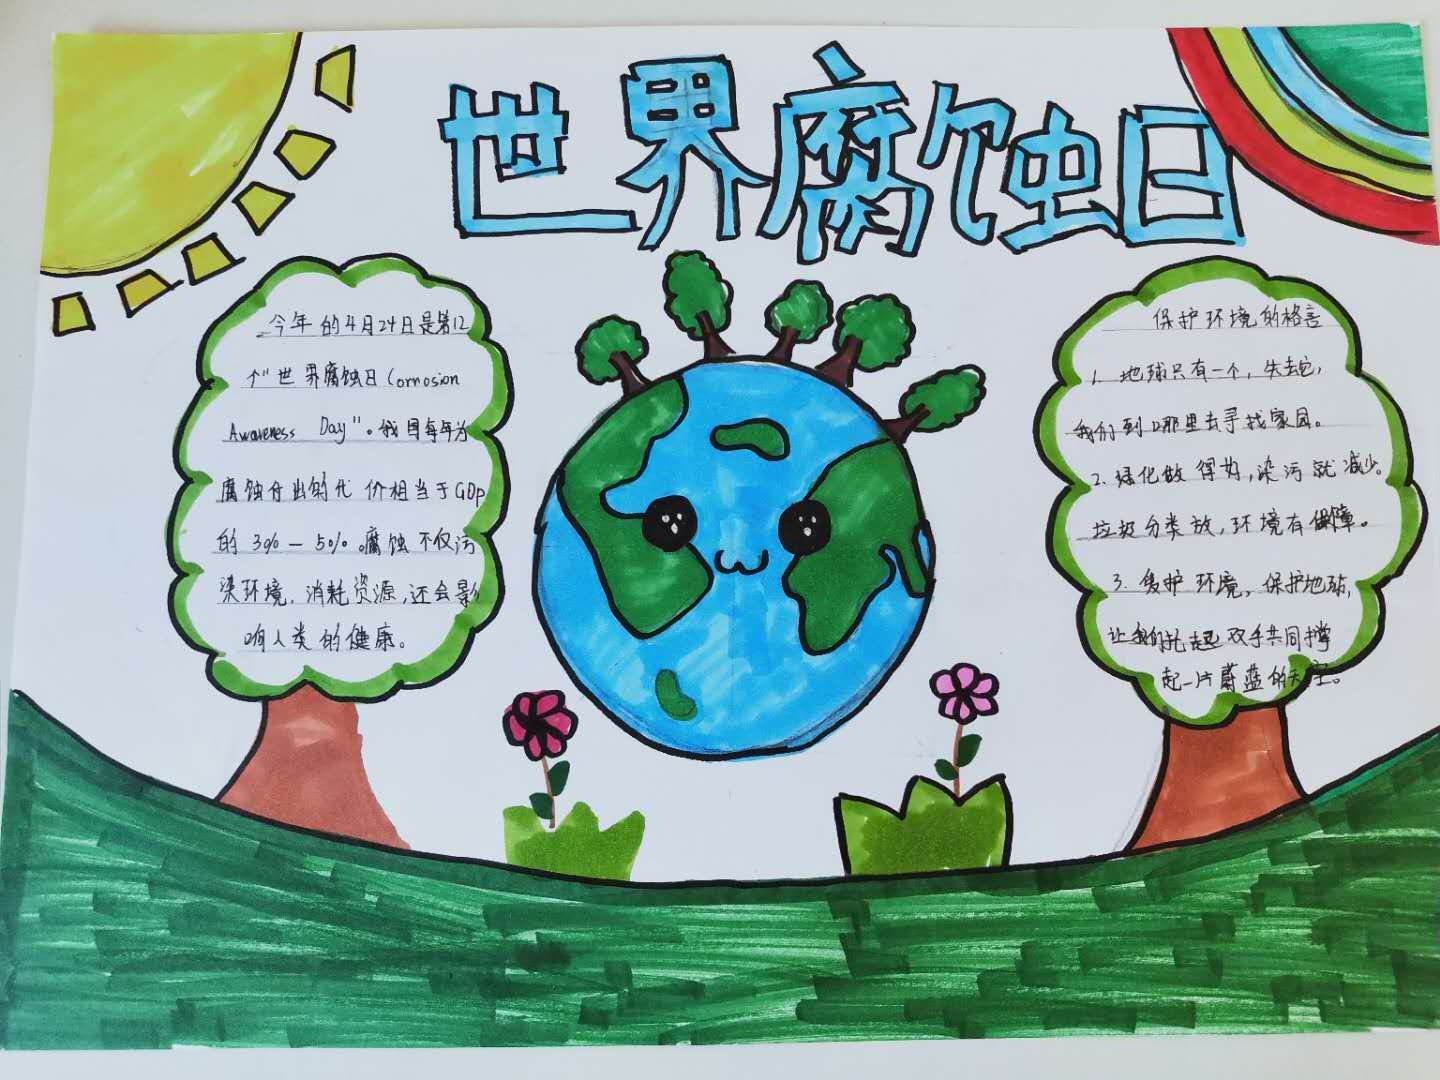 世界腐蚀日
今年的4月24日是第12
个"世界腐蚀日Cornosion
Awareness Day"。我国每年为
腐蚀付出的代价相当于GDP
的3%-5%。腐蚀不仅污
染环境,消耗资源,还会影
响人类的健康。
保护环境的格言
1. 地球只有一个,失去它,
我们到哪里去寻找家园。
2.绿化做得好,染污就减少。
垃圾分类放,环境有保障。
3. 爱护环境,保护地球,
让我们托起双手共同撑
起一片蔚蓝的天空。